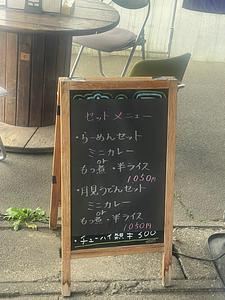 セットメニュー
・らーめんセット
ミニカレー
or
もつ煮・半ライス
1050円
・月見うどんセット
ミニカレー
or
もつ煮・半ライス
1050円
・チューハイ 500